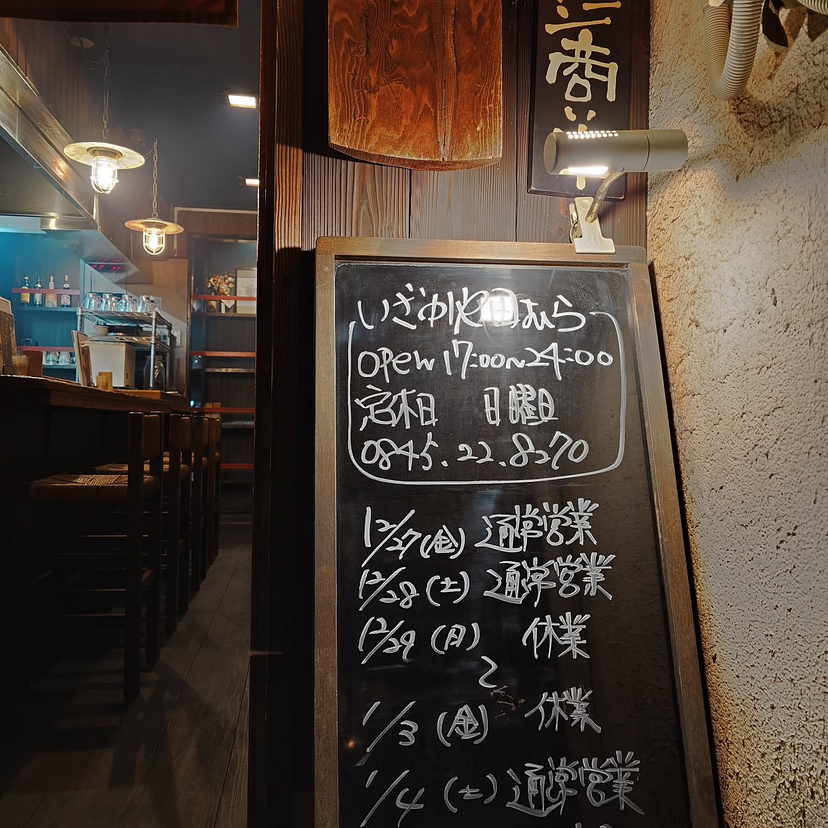 商い
いざ 田むら
open 17:00~24:00
定休日 日曜日
0845.22.8270
12/27(金) 通常営業
12/28(土) 通常営業
12/29(日) 休業
〜
1/3(金) 休業
1/4(土) 通常営業